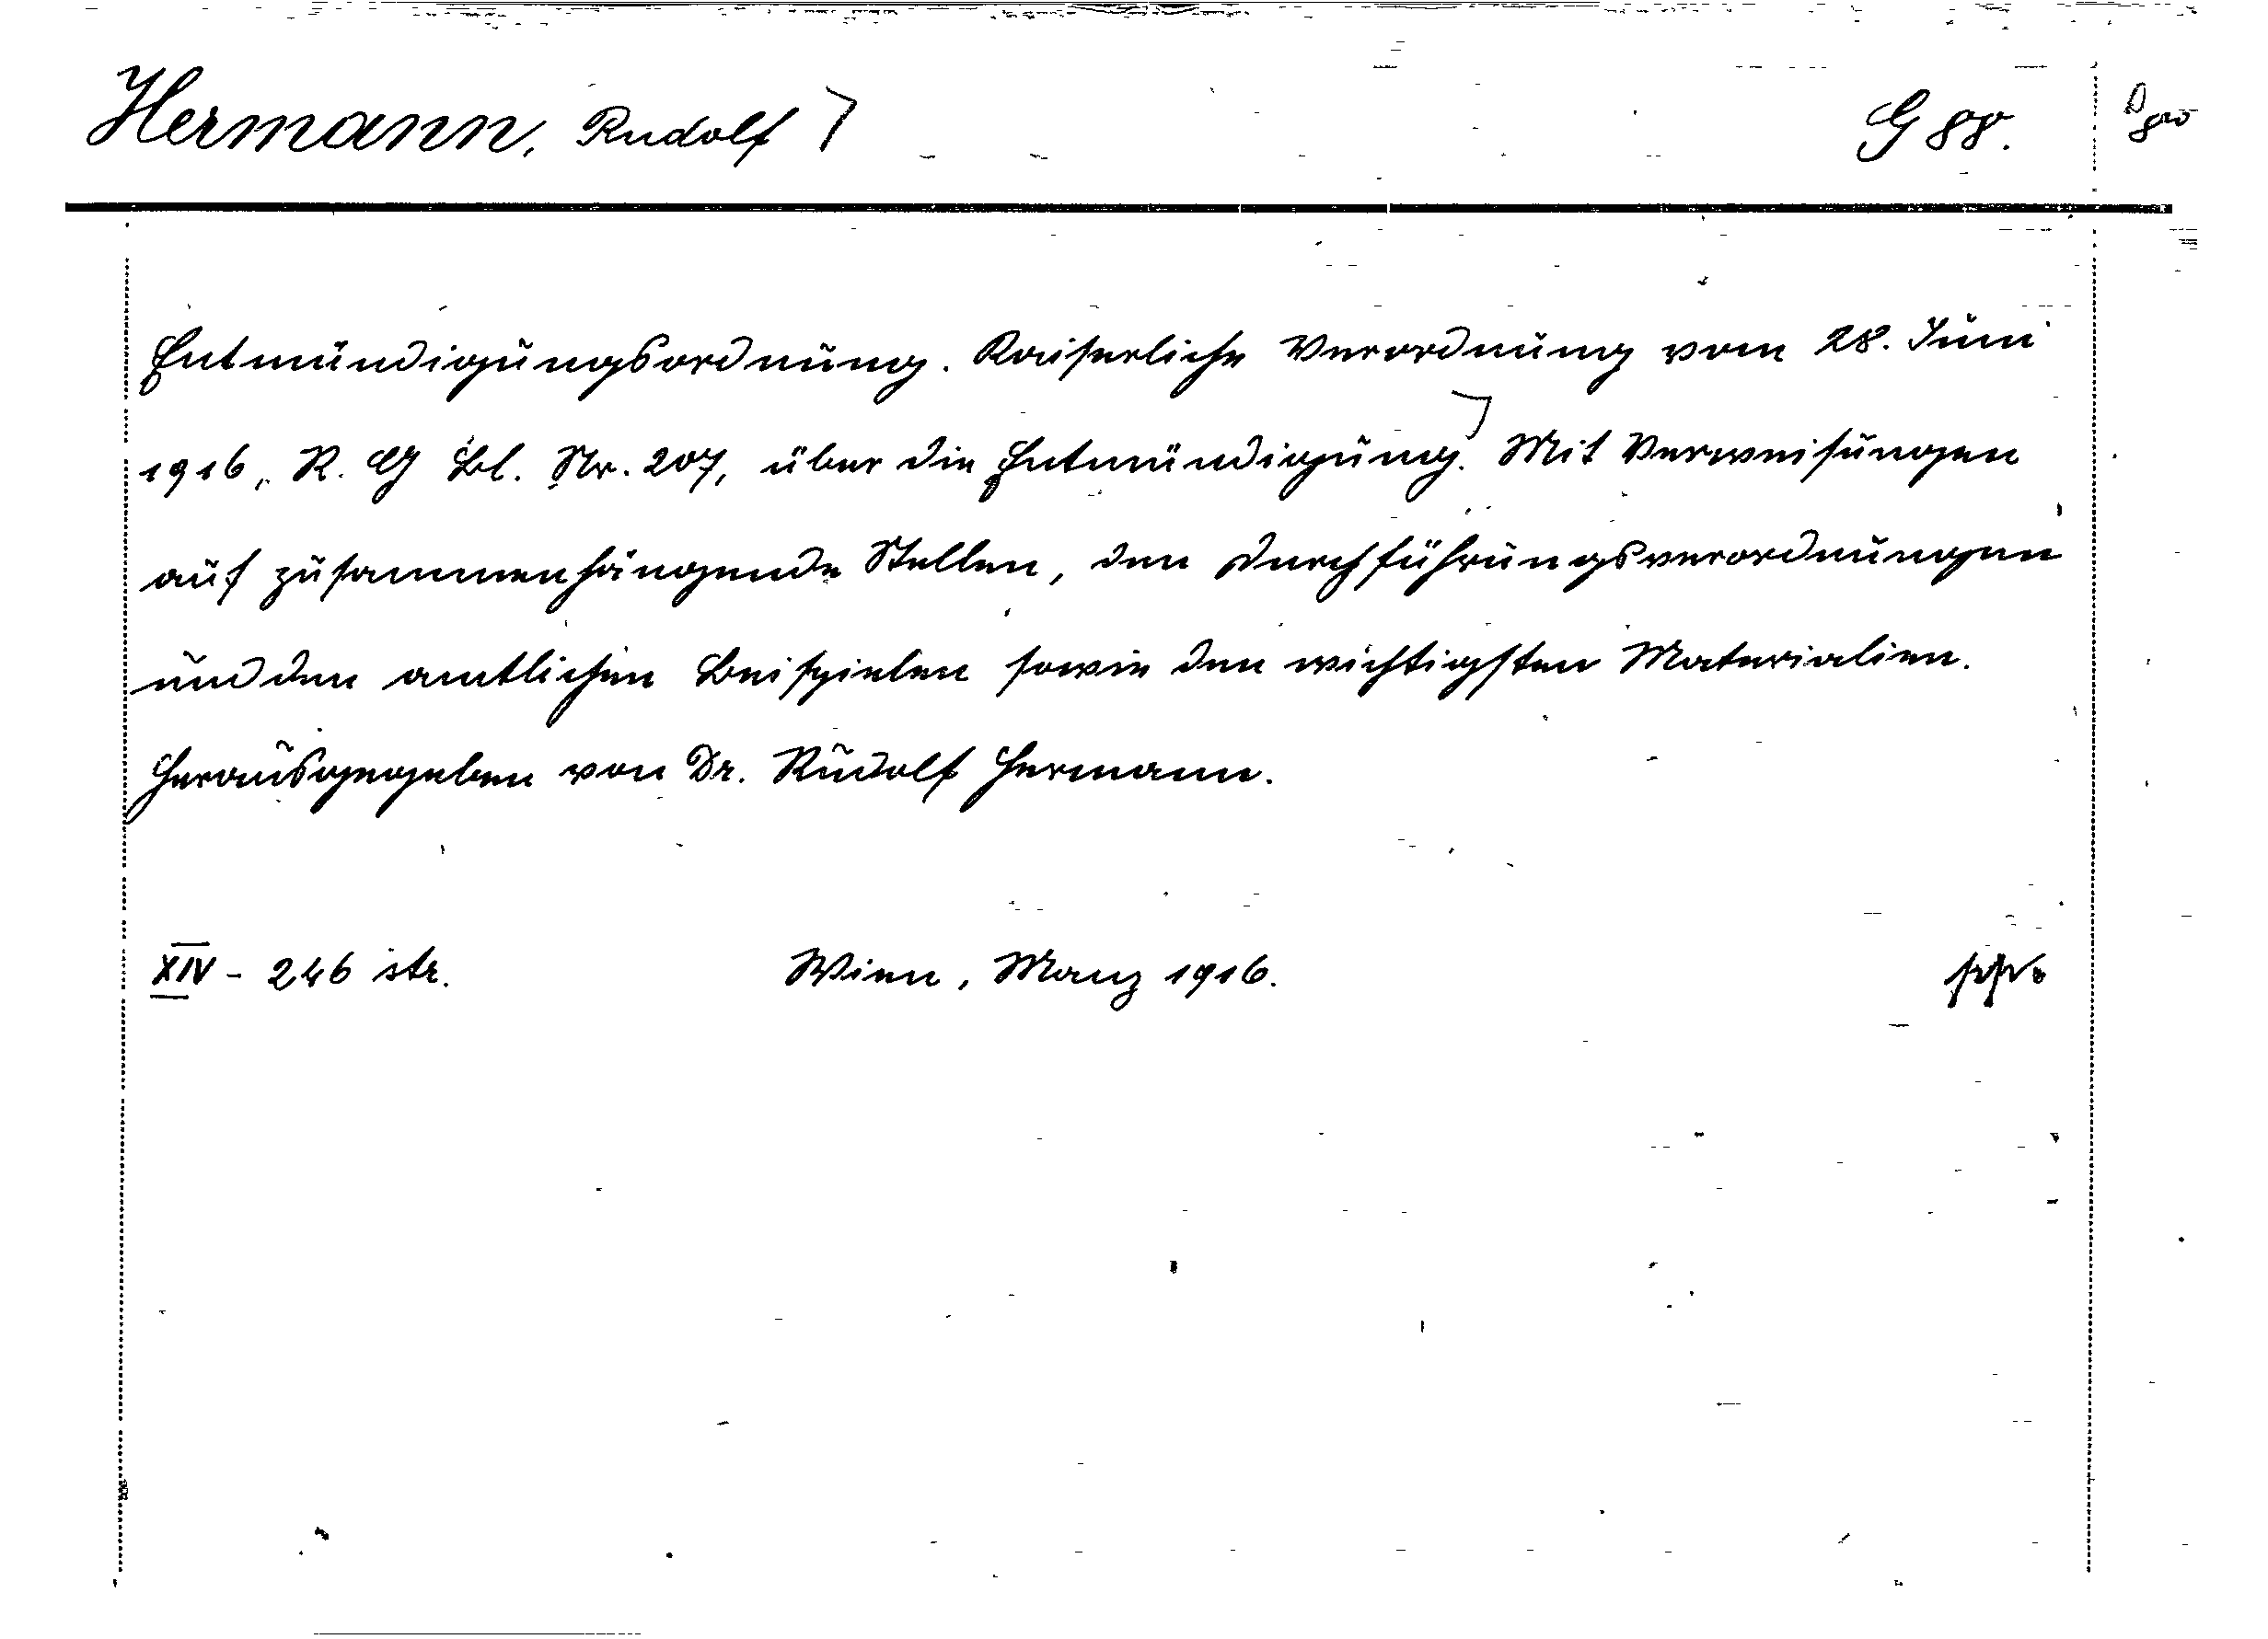 Hermann, Rudolf G 88.
Entmündigungsordnung. Kaiserliche Verordnung vom 28. Juni
1916, R. G Bl. Nr. 207, über die Entmündigung. Mit Verweisungen
auf zusammenhängende Stellen, den Durchführungsverordnungen
und den amtlichen Beispielen sowie den wichtigsten Materialien.
Herausgegeben von Dr. Rudolf Hermann.
XIV - 246 str. Wien, Manz 1916.